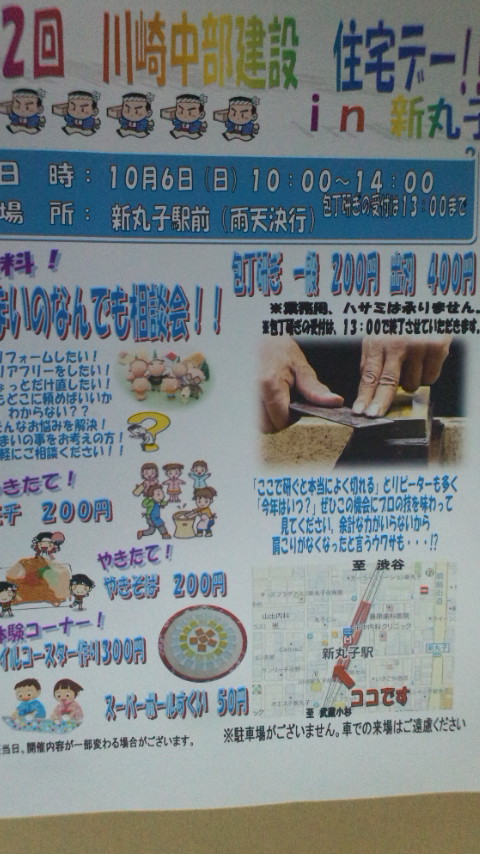 2回 川崎中部建設 住宅デー!!
in 新丸子
日 時： 10月6日（日）10：00～14：00
場 所： 新丸子駅前（雨天決行）
包丁研ぎの受付は13：00まで
料！
まいのなんでも相談会！！
リフォームしたい！
リアフリーをしたい！
ょっとだけ直したい！
どこに頼めばいいか
わからない？？
そんなお悩みを解決！
まいの事をお考えの方！
軽にご相談ください！！
包丁研ぎ 一般 200円 出刃 400円
※業務用、ハサミは承りません。
※包丁研ぎの受付は、13：00で終了させていただきます。
「ここで研ぐと本当によく切れる」とリピーターも多く
「今年はいつ？」ぜひこの機会にプロの技を味わって
見てください。余計な力がいらないから
肩こりがなくなったと言うウワサも・・・!?
きたて！
モチ 200円
やきたて！
やきそば 200円
体験コーナー！
イルコースター作り300円
スーパーボールすくい 50円
至 渋谷
新丸子駅
ココです
至 武蔵小杉
当日、開催内容が一部変わる場合がございます。
※駐車場がございません。車での来場はご遠慮ください